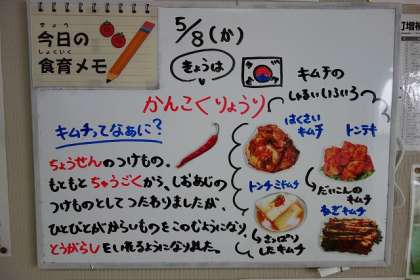 きょう
今日の
しょくいく
食育メモ
5/8(か)
きょうは
かんこくりょうり
キムチの
しゅるいいろいろ
キムチってなぁに?
ちょうせんのつけもの。
もともとちゅうごくから、しおあじの
つけものとしてつたわりましたが、
ひとびとがからいものをこのむようになり、
とうがらしをいれるようになりました。
はくさい
キムチ
トンチミキムチ
さっぱり
したキムチ
だいこんの
キムチ
ねぎキムチ